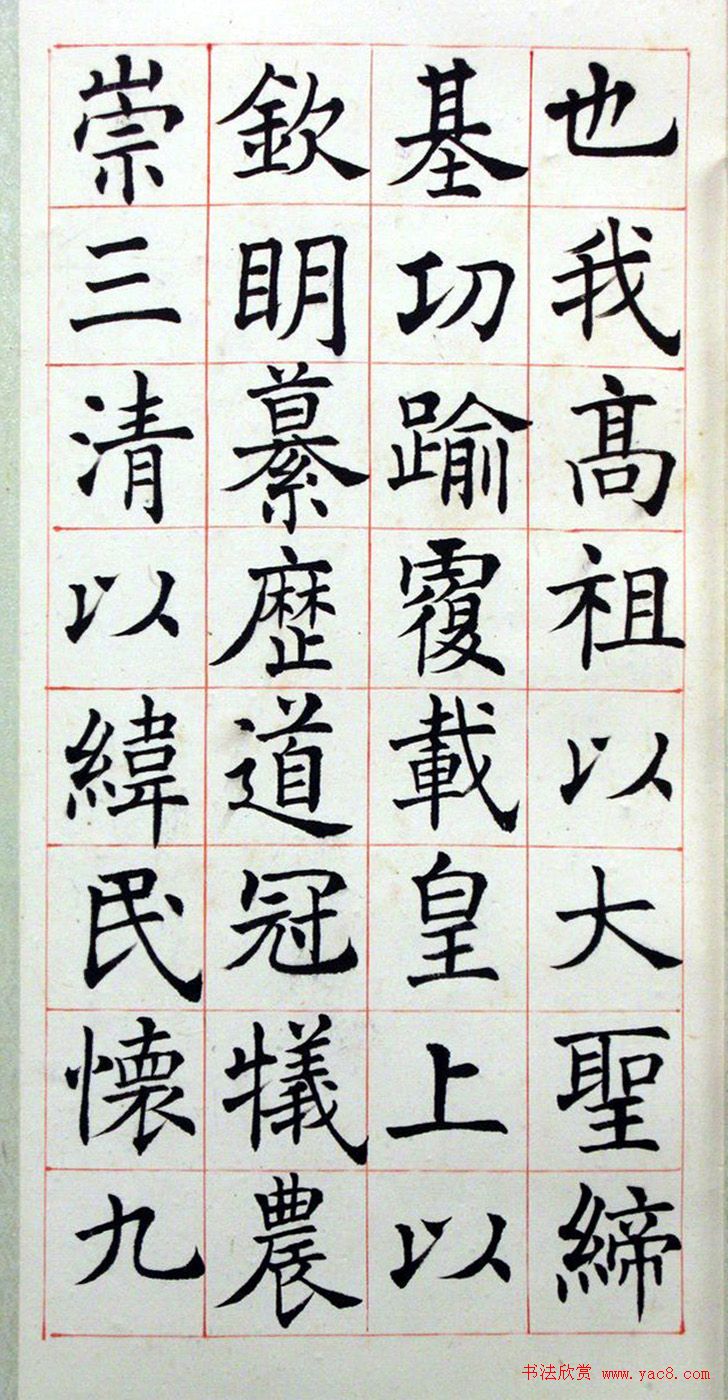 也我高祖以大聖締
基功踰覆載皇上以
欽明纂歷道冠犧農
崇三清以緯民懷九
书法欣赏 www.yac8.com